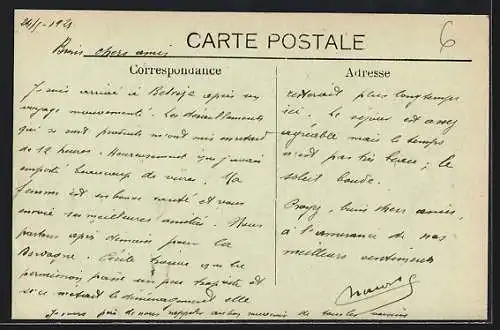 CARTE POSTALE
6
Correspondance
Adresse
chers amis
Je suis arrivé à après un
voyage mouvementé. Les déraillements
qui se sont produits m'ont mis en retard
de 12 heures. Heureusement que j'avais
emporté beaucoup de vivres. Ma
femme est en bonne santé et vous
envoie ses meilleures amitiés. Nous
partons après demain pour la
permission
si ce le déménagement elle
resterait plus longtemps
ici. Le séjour est assez
agréable mais le temps
n'est pas très beau; le
soleil boude.
chers amis,
à l'assurance de nos
meilleurs sentiments
de nous rappeler au bon souvenir de